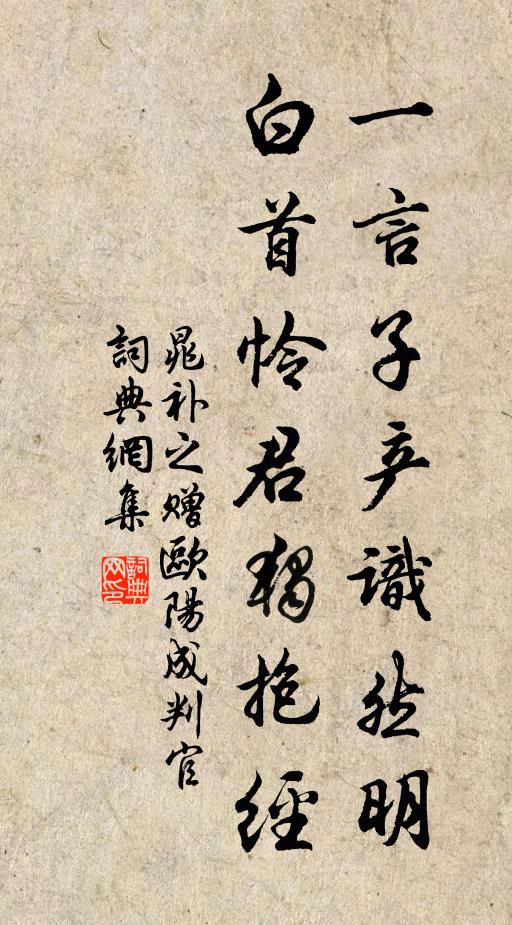 一言子产識然明
白首怜君独抱經
晁补之赠歐陽成判官
詞典網集
詞典网印